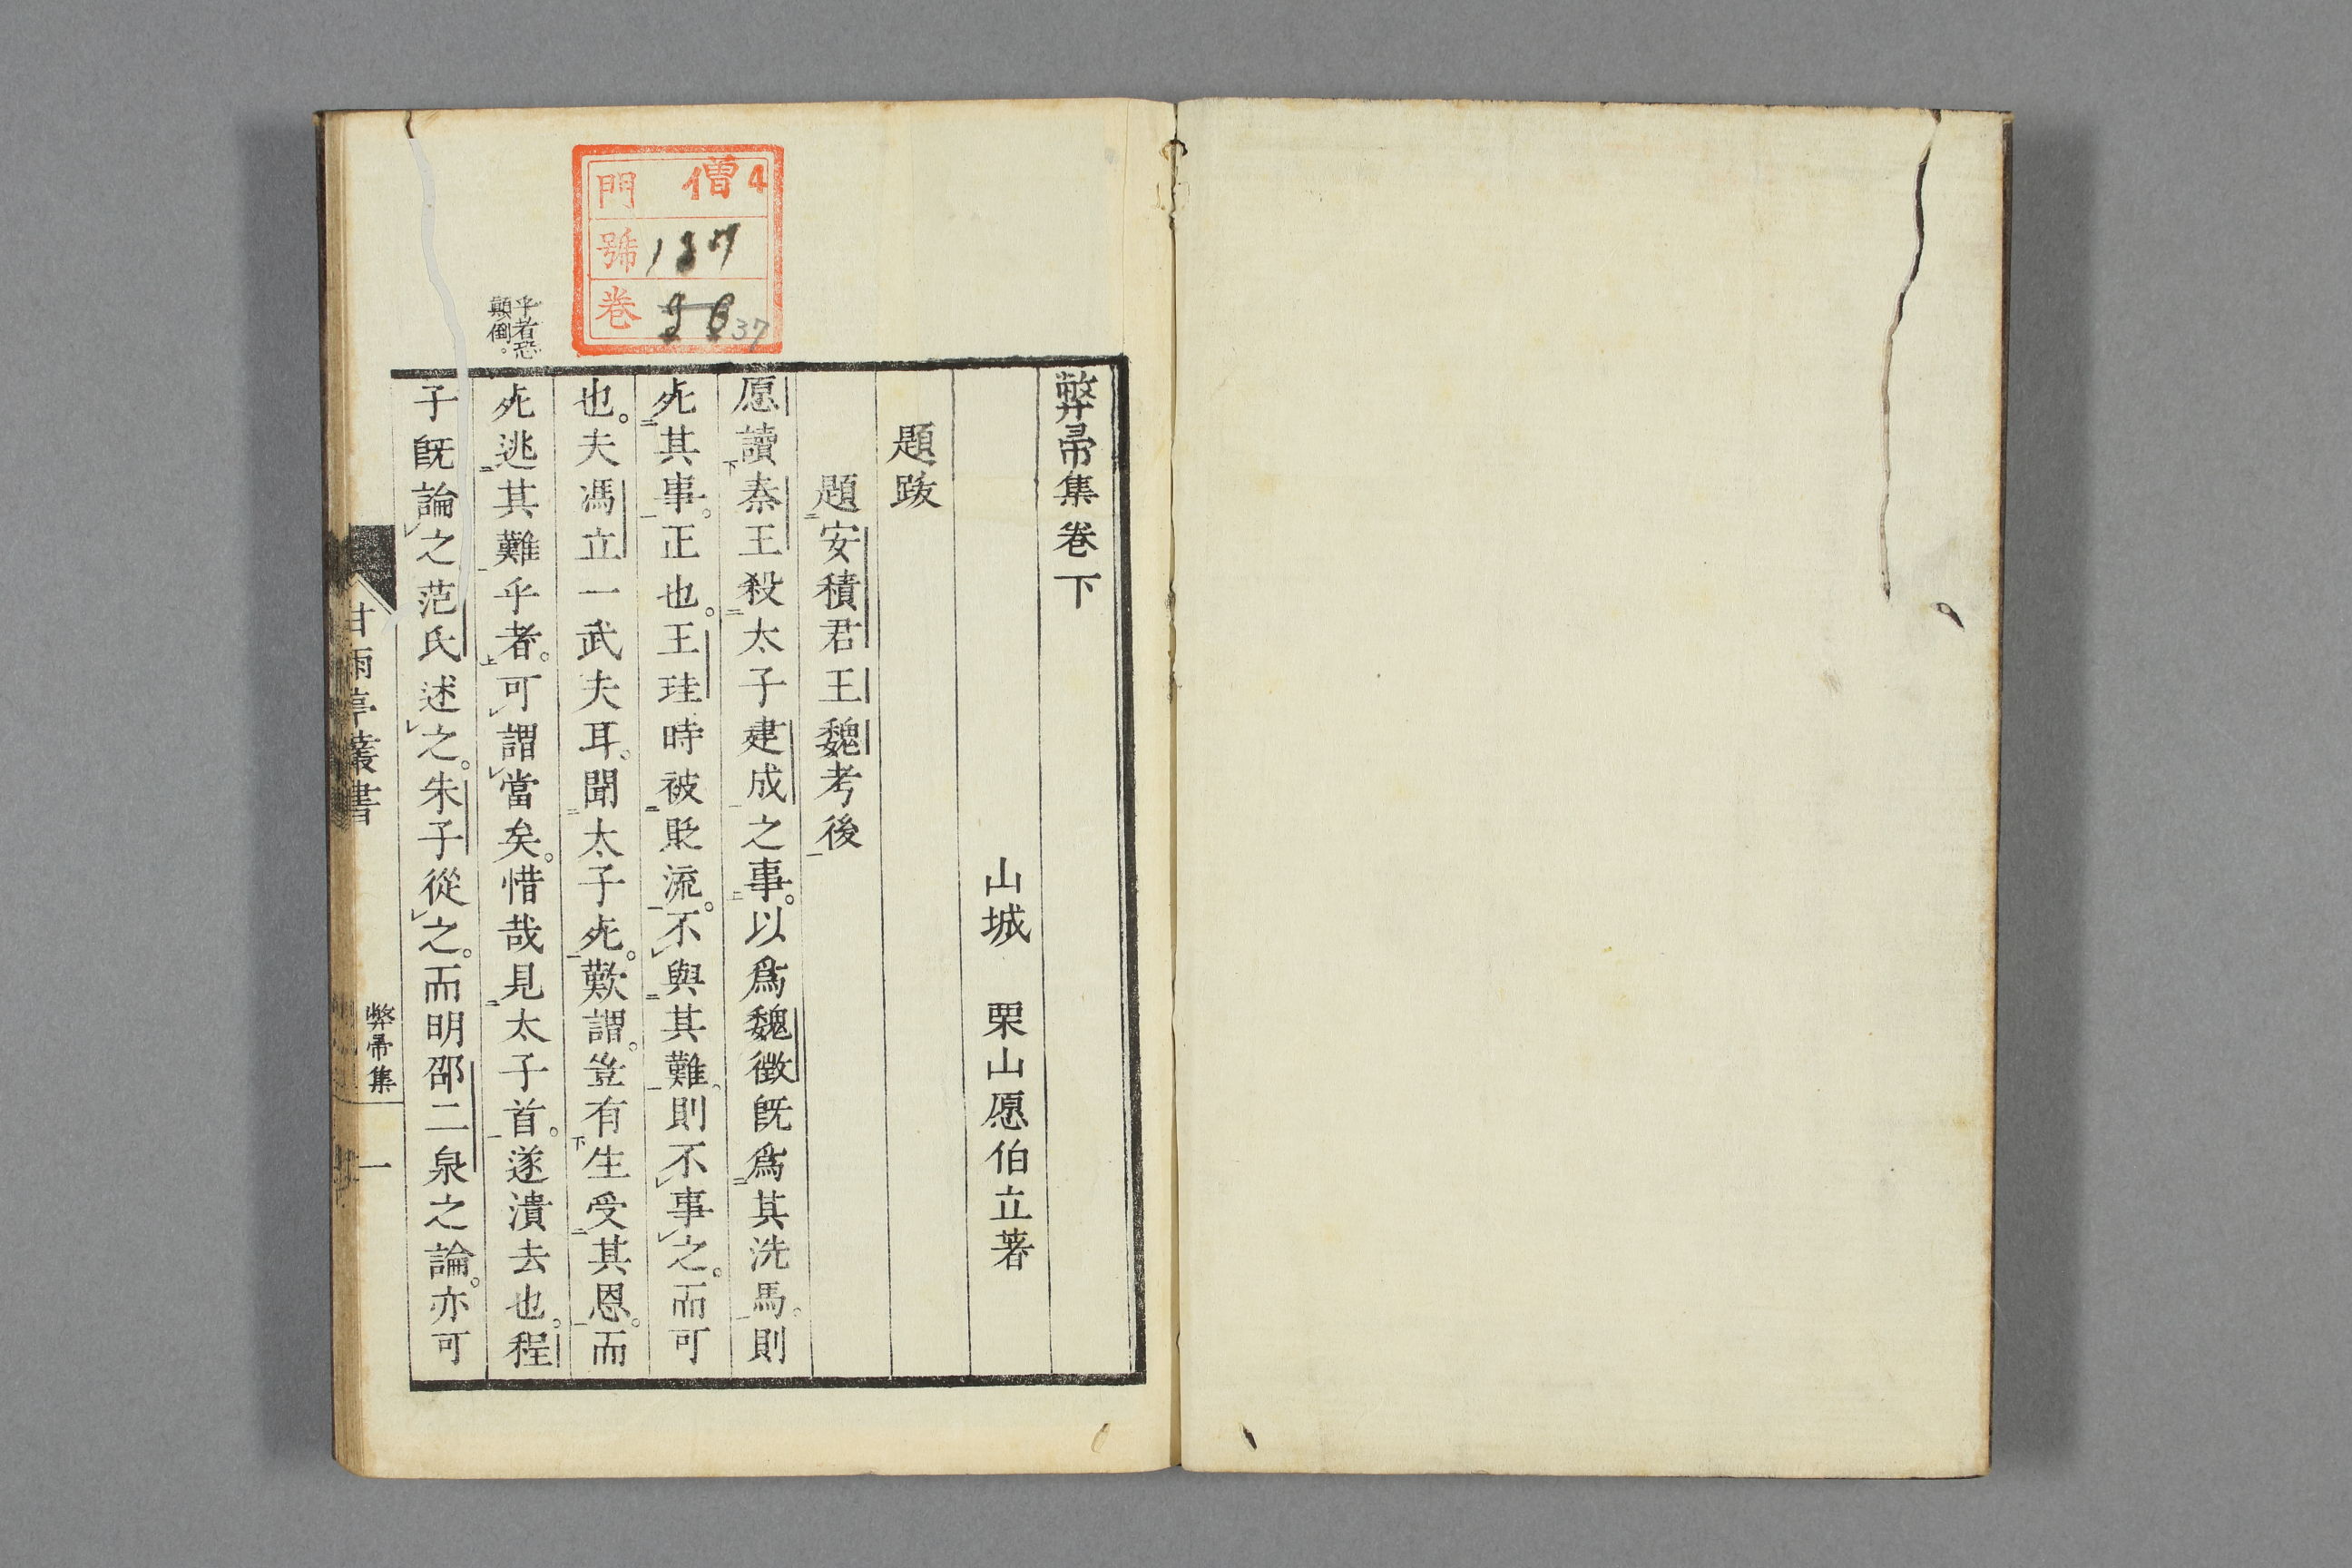 弊帚集卷下
山城　栗山愿伯立著
題跋
題安積君王魏考後
愿讀秦王殺太子建成之事。以爲魏徵既爲其洗馬。則
死其事。正也。王珪時被貶流。不與其難。則不事之。而可
也。夫馮立一武夫耳。聞太子死。歎謂。豈有生受其恩。而
死逃其難乎者。可謂當矣。惜哉見太子首。遂潰去也。程
子既論之范氏述之。朱子從之。而明邵二泉之論。亦可
乎者恐
顛倒。
甘雨亭叢書
弊帚集
一
僧4
門
號 137
卷 37